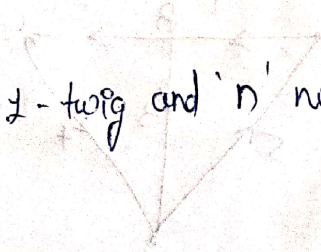 1 - twig and 'n'